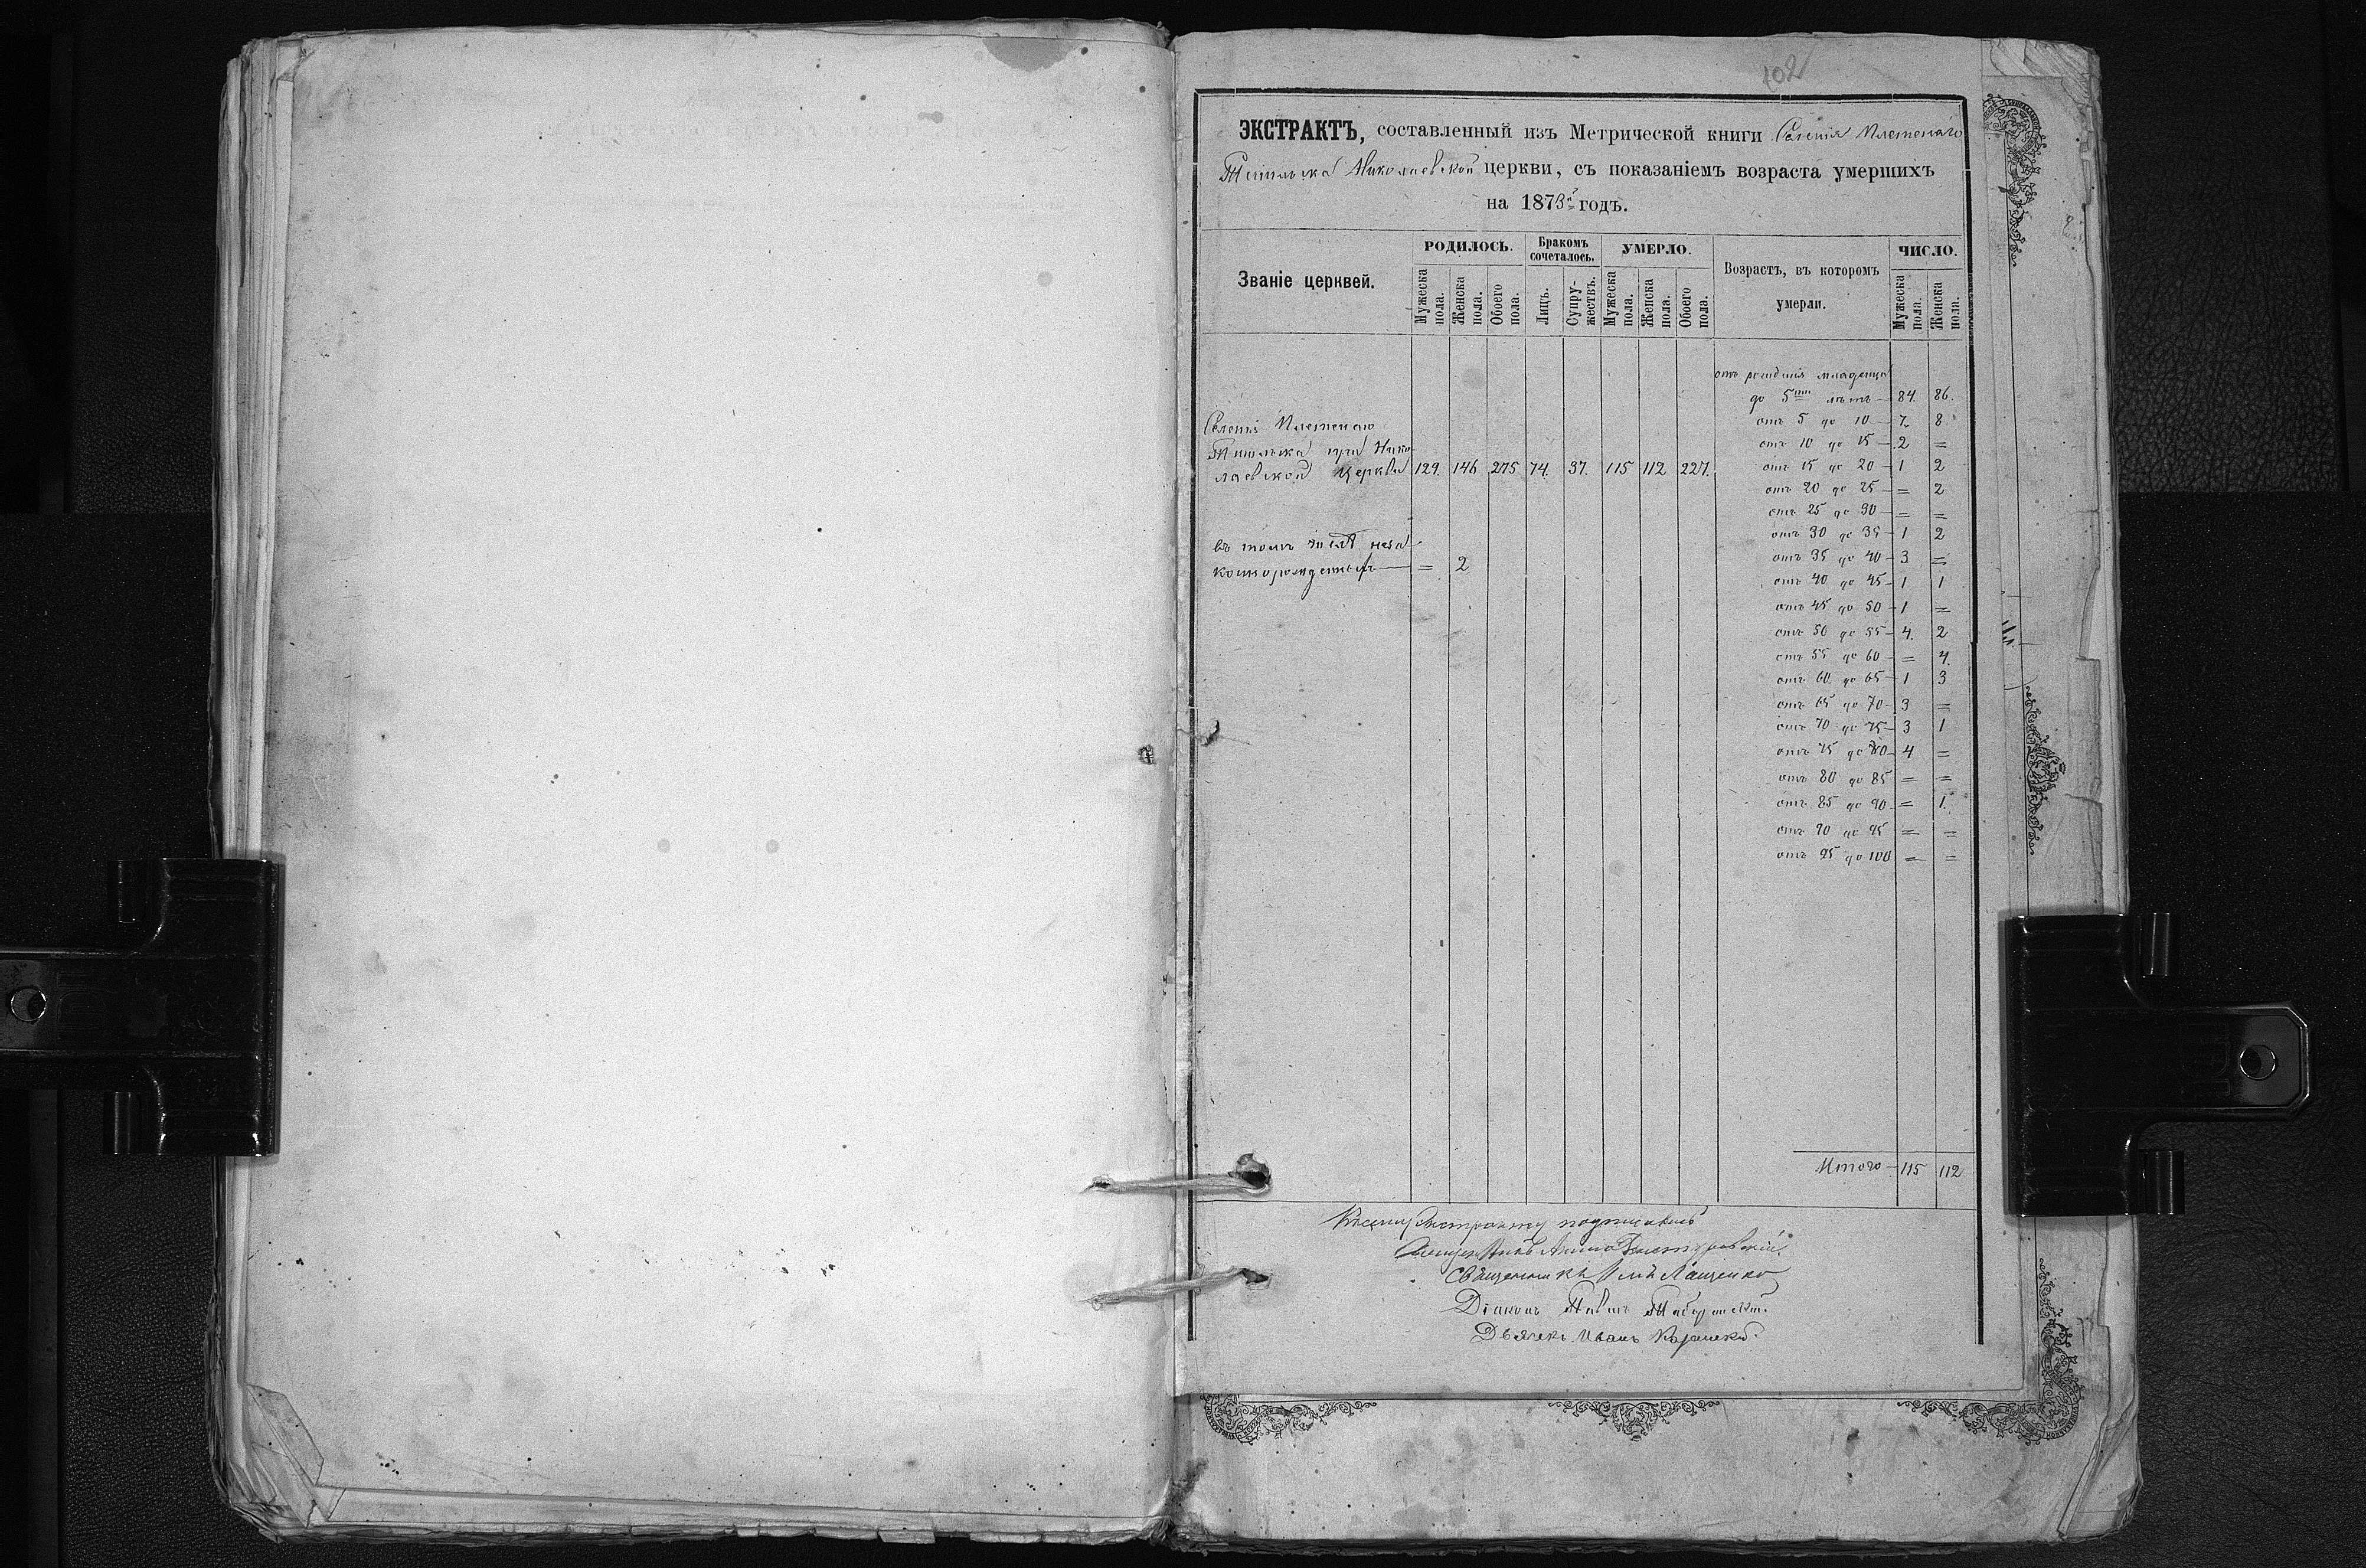 102
ЭКСТРАКТЪ, составленный изъ Метрической книги Селенія Плетенаго
Ташлыка Николаевской церкви, съ показаніемъ возраста умершихъ
на 1873й годъ.
Званіе церквей.
РОДИЛОСЬ.
Мужеска пола.
Женска пола.
Обоего пола.
Бракомъ сочеталось.
Лицъ.
Супру-жествъ.
УМЕРЛО.
Мужеска пола.
Женска пола.
Обоего пола.
Возрастъ, въ которомъ
умерли.
ЧИСЛО.
Мужеска пола.
Женска пола.
Селенія Плетенаго
Ташлыка при Нико
лаевской церкви 129. 146 275 74. 37. 115 112 227.
въ томъ числѣ неза
коннорожденныхъ — = 2
отъ рожденія младенца
до 5ти лѣтъ — 84. 86.
отъ 5 до 10 — 7 8
отъ 10 до 15 — 2 =
отъ 15 до 20 — 1 2
отъ 20 до 25 — = 2
отъ 25 до 30 — = =
отъ 30 до 35 — 1 2
отъ 35 до 40 — 3 =
отъ 40 до 45 — 1 1
отъ 45 до 50 — 1 =
отъ 50 до 55 — 4. 2
отъ 55 до 60 — = 4.
отъ 60 до 65 — 1 3
отъ 65 до 70 — 3 =
отъ 70 до 75 — 3 1
отъ 75 до 80 — 4 =
отъ 80 до 85 = =
отъ 85 до 90 = 1.
отъ 90 до 95 = =
отъ 95 до 100 = =
Итого — 115 112
Къ сему Экстракту подписались
Священникъ Лащенко
Діаконъ Павелъ
Дьячекъ Иванъ